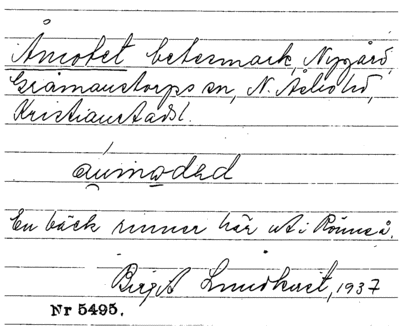 Åmotet betesmark, Nygård,
Gråmanstorps sn, N. Åsbo hd,
Kristianstads l.
En bäck rinner här ut i Rönneå.
Birgit Lundkvist, 1937
Nr 5495.